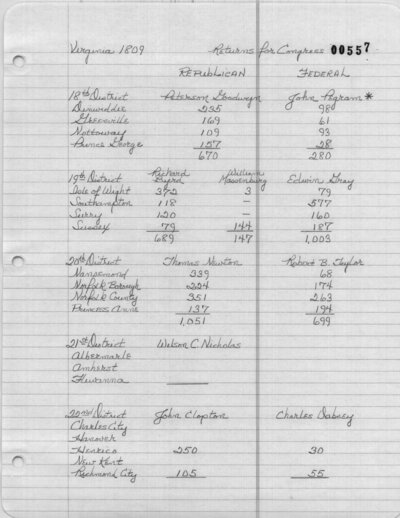 Virginia 1809 Returns for Congress 00557
REPUBLICAN FEDERAL
18th District Peterson Goodwyn John Pegram *
Dinwiddie 235 98
Greensville 169 61
Nottoway 109 93
Prince George 157 28
670 280
19th District Richard Byrd William Massenburg Edwin Gray
Isle of Wight 372 3 79
Southampton 118 — 577
Surry 120 — 160
Sussex 79 144 187
689 147 1,003
20th District Thomas Newton Robert B. Taylor
Nansemond 339 68
Norfolk Borough 224 174
Norfolk County 351 263
Princess Anne 137 194
1,051 699
21st District Wilson C. Nicholas
Albermarle
Amherst
Fluvanna
22nd District John Clopton Charles Dabney
Charles City
Hanover
Henrico 250 30
New Kent
Richmond City 105 55